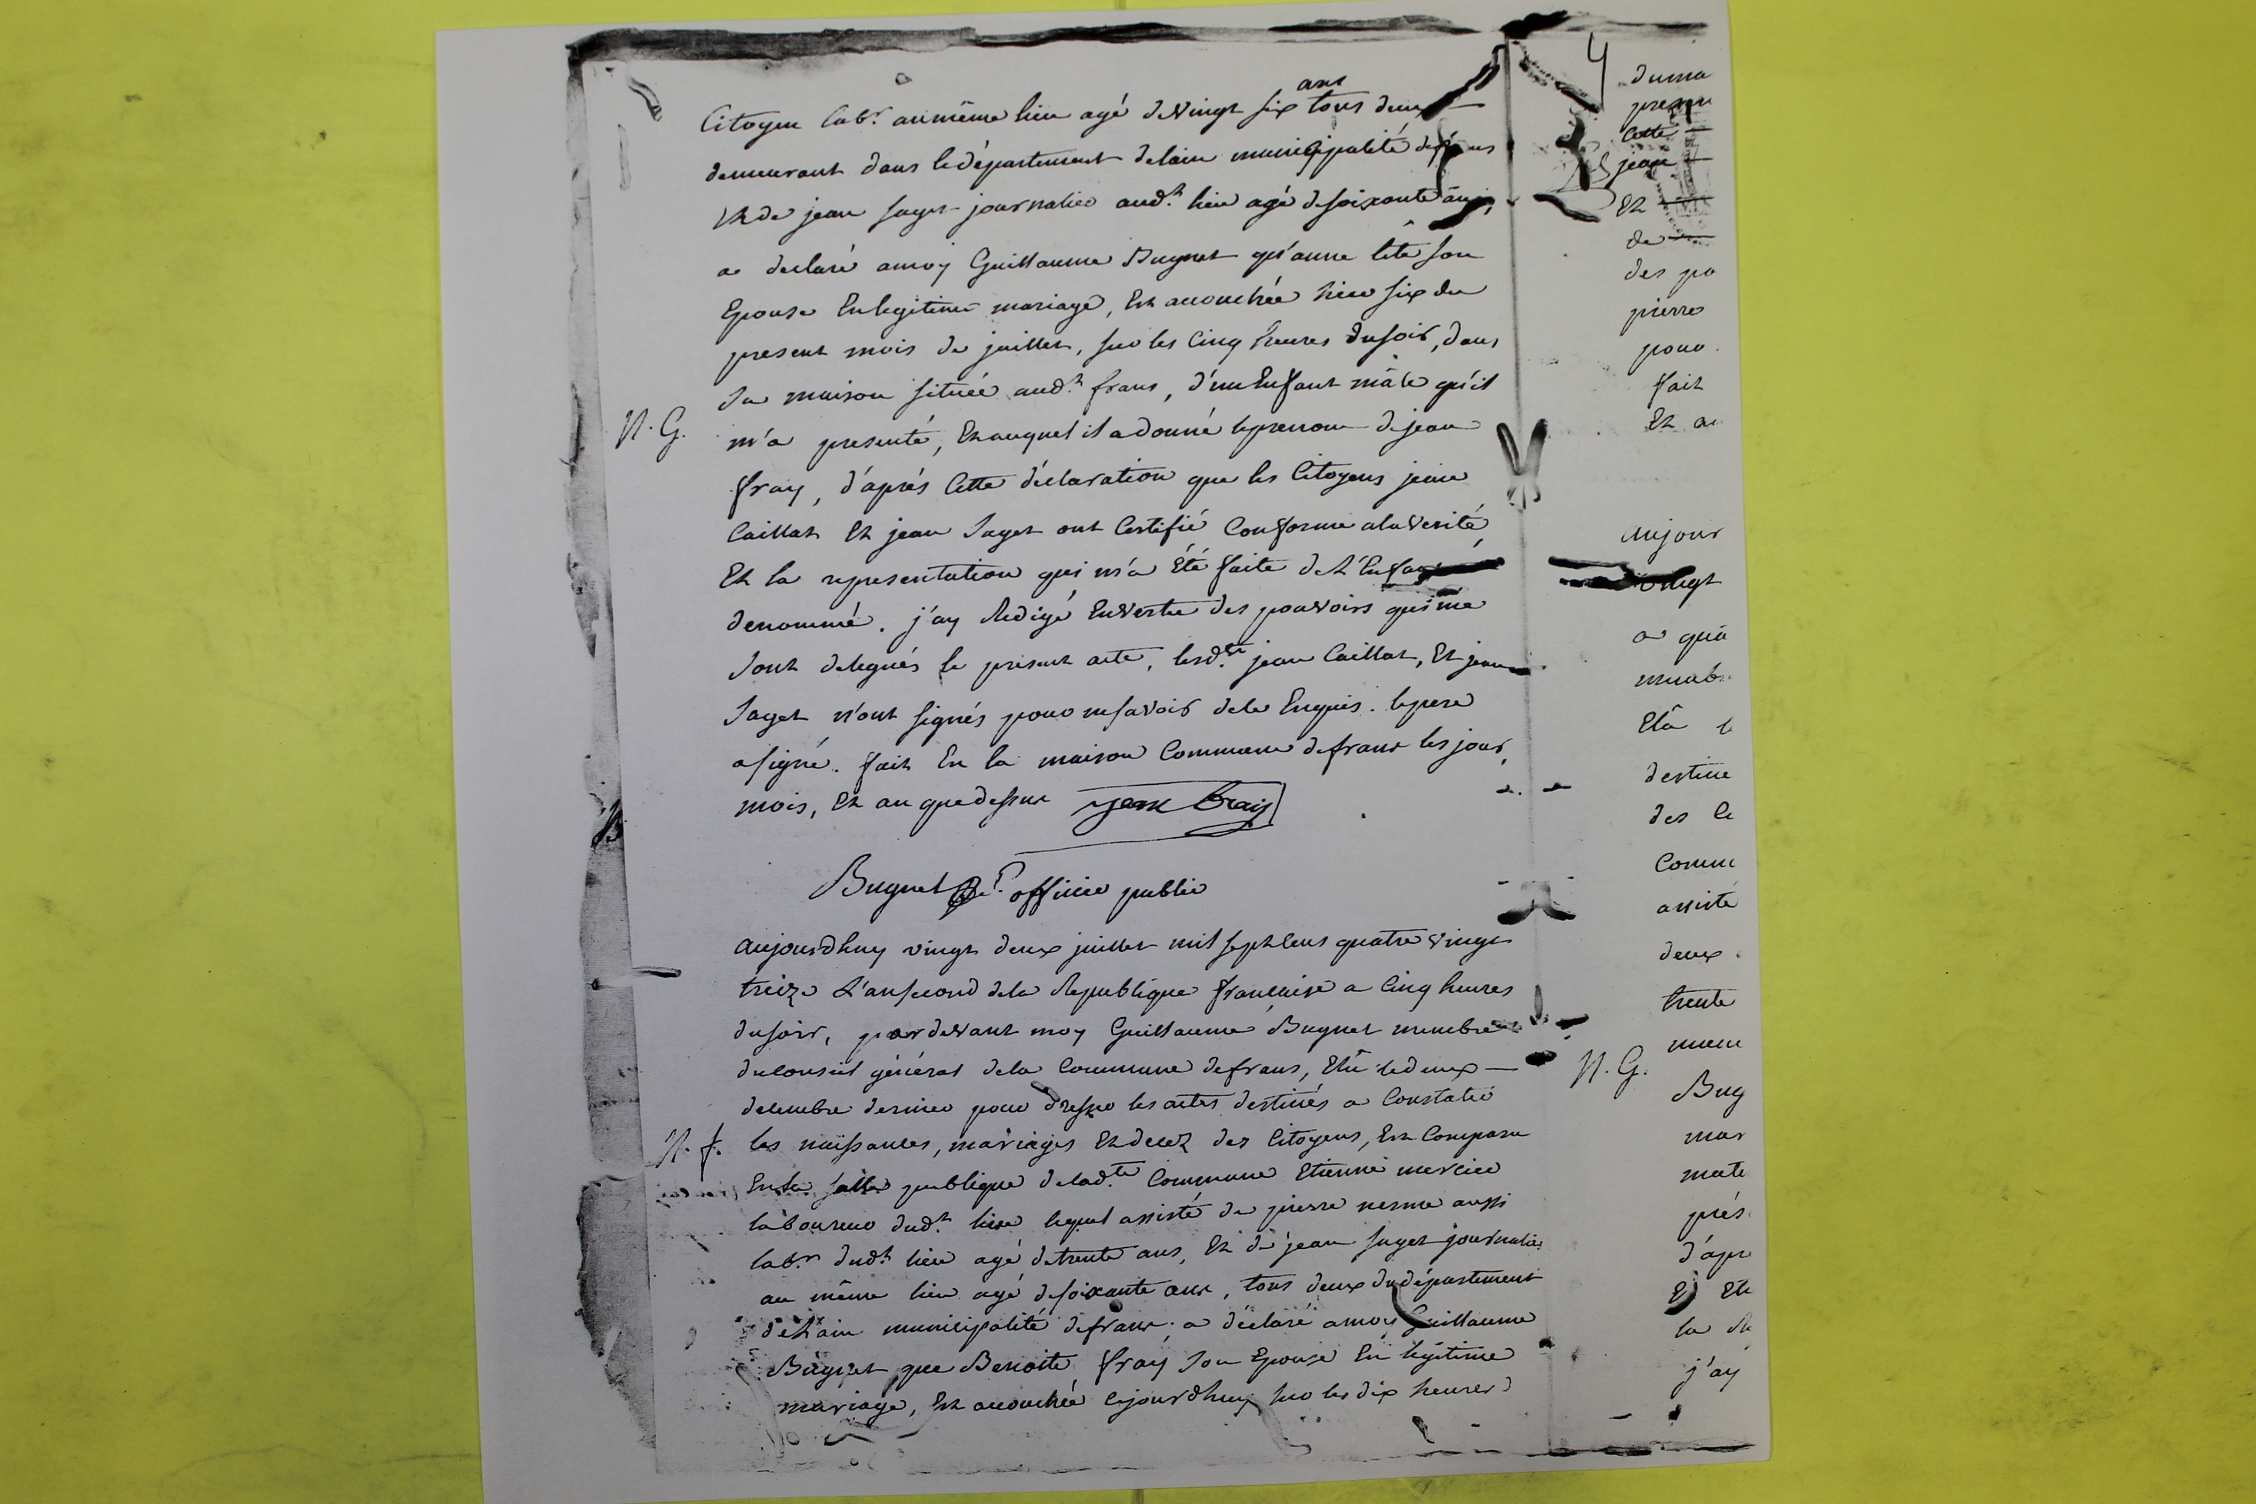 ans
Citoyen lab.r au même lieu agé de Vingt six tous deux
demeurant dans le département delain municipalité defrans
Et de jean Saget journalier aud.t lieu agé desoixante ans,
a declaré amoy Guillaume Bugnet qu'anne son
Epouse En legitime mariage, Est accouchée hier six du
present mois de juillet, sur les Cinq heures dusoir, dans
Sa maison située aud.t frans, d'un Enfant mâle qu'il
N. G.
m'a presenté, Et auquel il a donné leprenom de jean
fray, d'aprés Cette déclaration que les Citoyens jean
Caillat Et jean Saget ont Certifié Conforme alaVerité,
Et la representation qui m'a Eté faite de L'Enfant
denommé. j'ay Redigé EnVertu des pouVoirs qui me
Sont delegués le présent acte, lesd.ts jean Caillat, Et jean
Saget n'ont signés pour nesavoir dele Enquis. lepere
asigné. fait En la maison Commune defrans les jour,
mois, Et an que dessus jean fray
Bugnet officier public
aujourdhuy vingt deux juillet mil sept Cens quatre vingt
treize L'an second dela Republique française a Cinq heures
dusoir, pardeVant moy Guillaume Bugnet membre
du Conseil général dela Commune defrans, Elû le deux
decembre dernier pour dresser les actes destinés a Constater
N. f.
les naissances, mariages Et decez des Citoyens, Est Comparu
En la salle publique de lad.te Commune Etienne mercier
laboureur dud.t lieu lequel assisté de pierre nesme aussi
lab.r dud.t lieu agé detrente ans, Et de jean Saget journalier
au même lieu agé desoixante ans, tous deux du département
deLain municipalité defrans. a déclaré amoy Guillaume
Bugnet que Benoite fray Son Epouse En legitime
mariage, Est accouchée cejourdhuy sur les dix heures
4
duma
presen
Cette
jean
Et
de
des po
pierre
pour
fait
Et au
aujour
vingt
a qua
memb
Elû le
destine
des
Comm
assisté
deux
trente
N. G.
Bug
mar
prés
d'apr
Et
la
j'ay